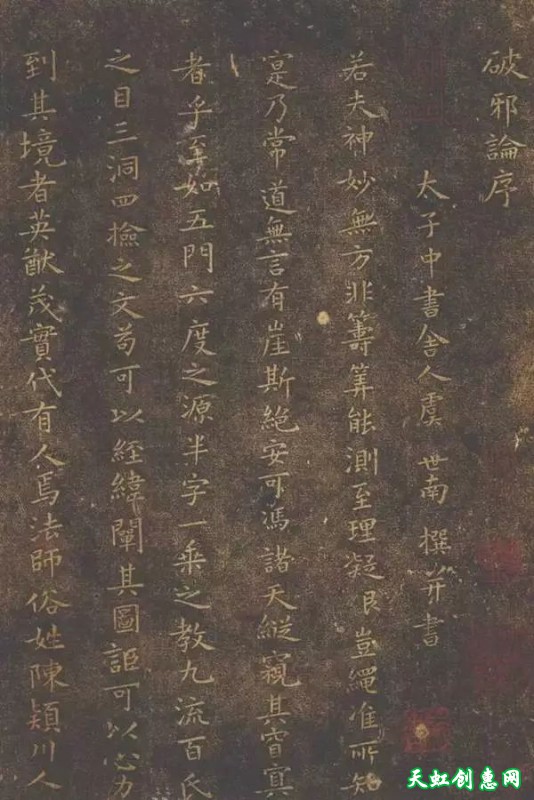 破邪論序
太子中書舍人虞世南撰并書
若夫神妙無方非籌筭能測至理凝豈繩准所知
寔乃常道無言有崖斯絶安可馮諸天縱窺其窅寘
者乎至如五門六度之源半字一乘之教九流百氏
之目三洞四撿之文苟可以經緯闡其圖詎可以心力
到其境者英猷茂實代有人焉法師俗姓陳潁川人
天虹创惠网